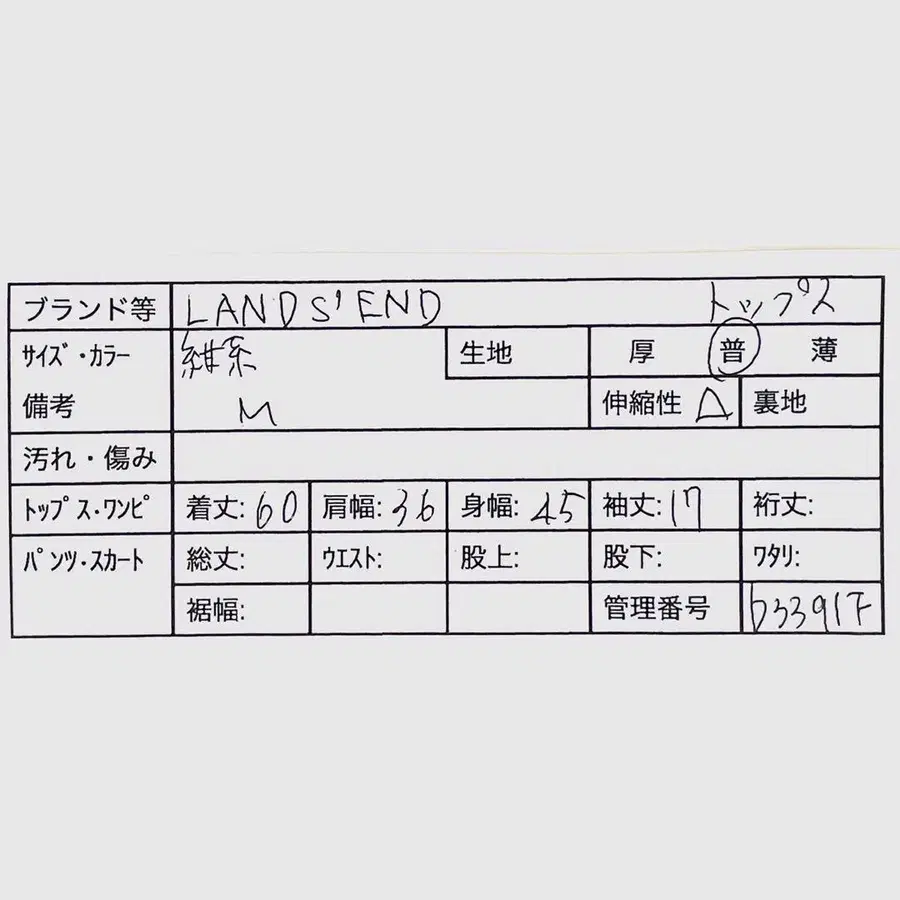 ブランド等 LANDS' END トップス
サイズ・カラー 紺系 生地 厚 普 薄
備考 M 伸縮性 △ 裏地
汚れ・傷み
トップス・ワンピ 着丈:60 肩幅:36 身幅:45 袖丈:17 裄丈:
パンツ・スカート 総丈: ウエスト: 股上: 股下: ワタリ:
裾幅: 管理番号